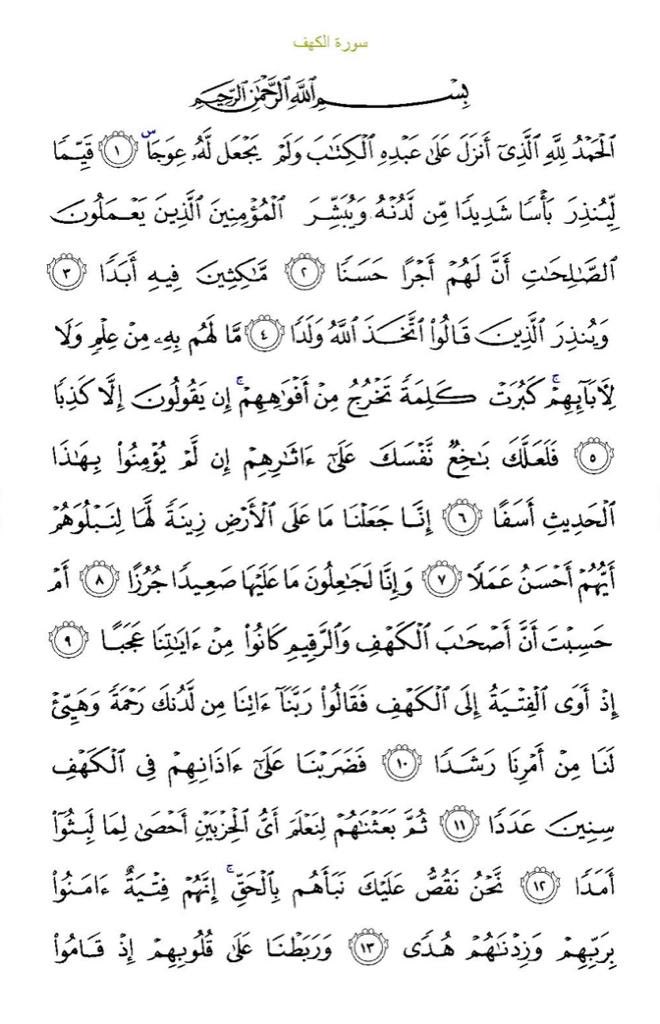 سورة الكهف
بِسْمِ اللَّهِ الرَّحْمَٰنِ الرَّحِيمِ
الْحَمْدُ لِلَّهِ الَّذِي أَنزَلَ عَلَىٰ عَبْدِهِ الْكِتَابَ وَلَمْ يَجْعَل لَّهُ عِوَجًا ۜ ١ قَيِّمًا
لِّيُنذِرَ بَأْسًا شَدِيدًا مِّن لَّدُنْهُ وَيُبَشِّرَ الْمُؤْمِنِينَ الَّذِينَ يَعْمَلُونَ
الصَّالِحَاتِ أَنَّ لَهُمْ أَجْرًا حَسَنًا ٢ مَّاكِثِينَ فِيهِ أَبَدًا ٣
وَيُنذِرَ الَّذِينَ قَالُوا اتَّخَذَ اللَّهُ وَلَدًا ٤ مَّا لَهُم بِهِ مِنْ عِلْمٍ وَلَا
لِآبَائِهِمْ ۚ كَبُرَتْ كَلِمَةً تَخْرُجُ مِنْ أَفْوَاهِهِمْ ۚ إِن يَقُولُونَ إِلَّا كَذِبًا
٥ فَلَعَلَّكَ بَاخِعٌ نَّفْسَكَ عَلَىٰ ءَاثَارِهِمْ إِن لَّمْ يُؤْمِنُوا بِهَٰذَا
الْحَدِيثِ أَسَفًا ٦ إِنَّا جَعَلْنَا مَا عَلَى الْأَرْضِ زِينَةً لَّهَا لِنَبْلُوَهُمْ
أَيُّهُمْ أَحْسَنُ عَمَلًا ٧ وَإِنَّا لَجَاعِلُونَ مَا عَلَيْهَا صَعِيدًا جُرُزًا ٨ أَمْ
حَسِبْتَ أَنَّ أَصْحَابَ الْكَهْفِ وَالرَّقِيمِ كَانُوا مِنْ ءَايَاتِنَا عَجَبًا ٩
إِذْ أَوَى الْفِتْيَةُ إِلَى الْكَهْفِ فَقَالُوا رَبَّنَا ءَاتِنَا مِن لَّدُنكَ رَحْمَةً وَهَيِّئْ
لَنَا مِنْ أَمْرِنَا رَشَدًا ١٠ فَضَرَبْنَا عَلَىٰ ءَاذَانِهِمْ فِي الْكَهْفِ
سِنِينَ عَدَدًا ١١ ثُمَّ بَعَثْنَاهُمْ لِنَعْلَمَ أَيُّ الْحِزْبَيْنِ أَحْصَىٰ لِمَا لَبِثُوا
أَمَدًا ١٢ نَّحْنُ نَقُصُّ عَلَيْكَ نَبَأَهُم بِالْحَقِّ ۚ إِنَّهُمْ فِتْيَةٌ ءَامَنُوا
بِرَبِّهِمْ وَزِدْنَاهُمْ هُدًى ١٣ وَرَبَطْنَا عَلَىٰ قُلُوبِهِمْ إِذْ قَامُوا